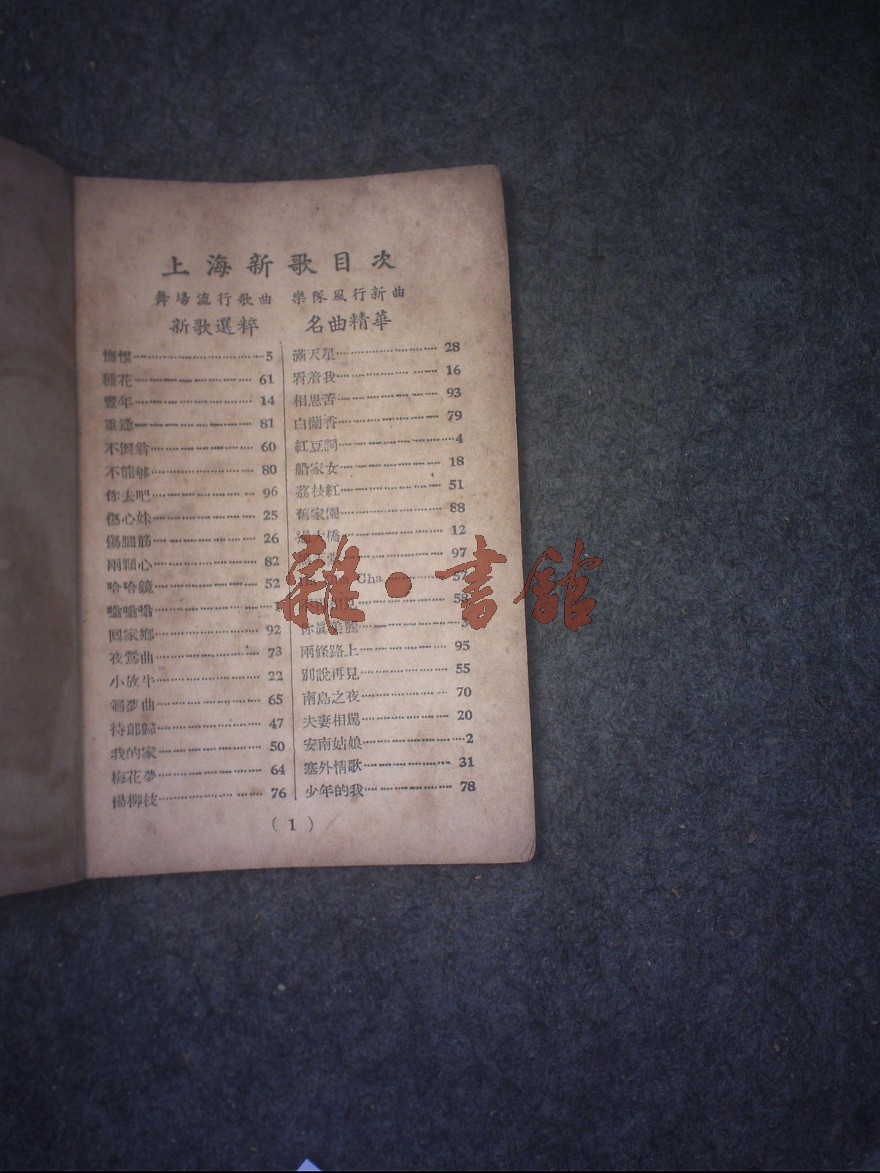 上海新歌目次
舞場流行歌曲 樂隊風行新曲
新歌選粹 名曲精華
悔恨 5
種花 61
豐年 14
重逢 81
60
不能够 80
你去吧 96
傷心妹 25
傷腦筋 26
兩顆心 82
哈哈鏡 52
嗡嗡嗡
回家鄉 92
夜鶯曲 73
小放牛 22
迴夢曲 65
待郎歸 47
我的家 50
梅花夢 64
楊柳枝 76
滿天星 28
看着我 16
相思苦 93
白蘭香 79
紅豆詞 4
船家女 18
荔枝紅 51
舊家園 88
大橋 12
97
Cha 57
你真美麗
兩條路上 95
別說再見 55
南島之夜 70
夫妻相罵 20
安南姑娘 2
塞外情歌 31
少年的我 78
(1)
雜·書館